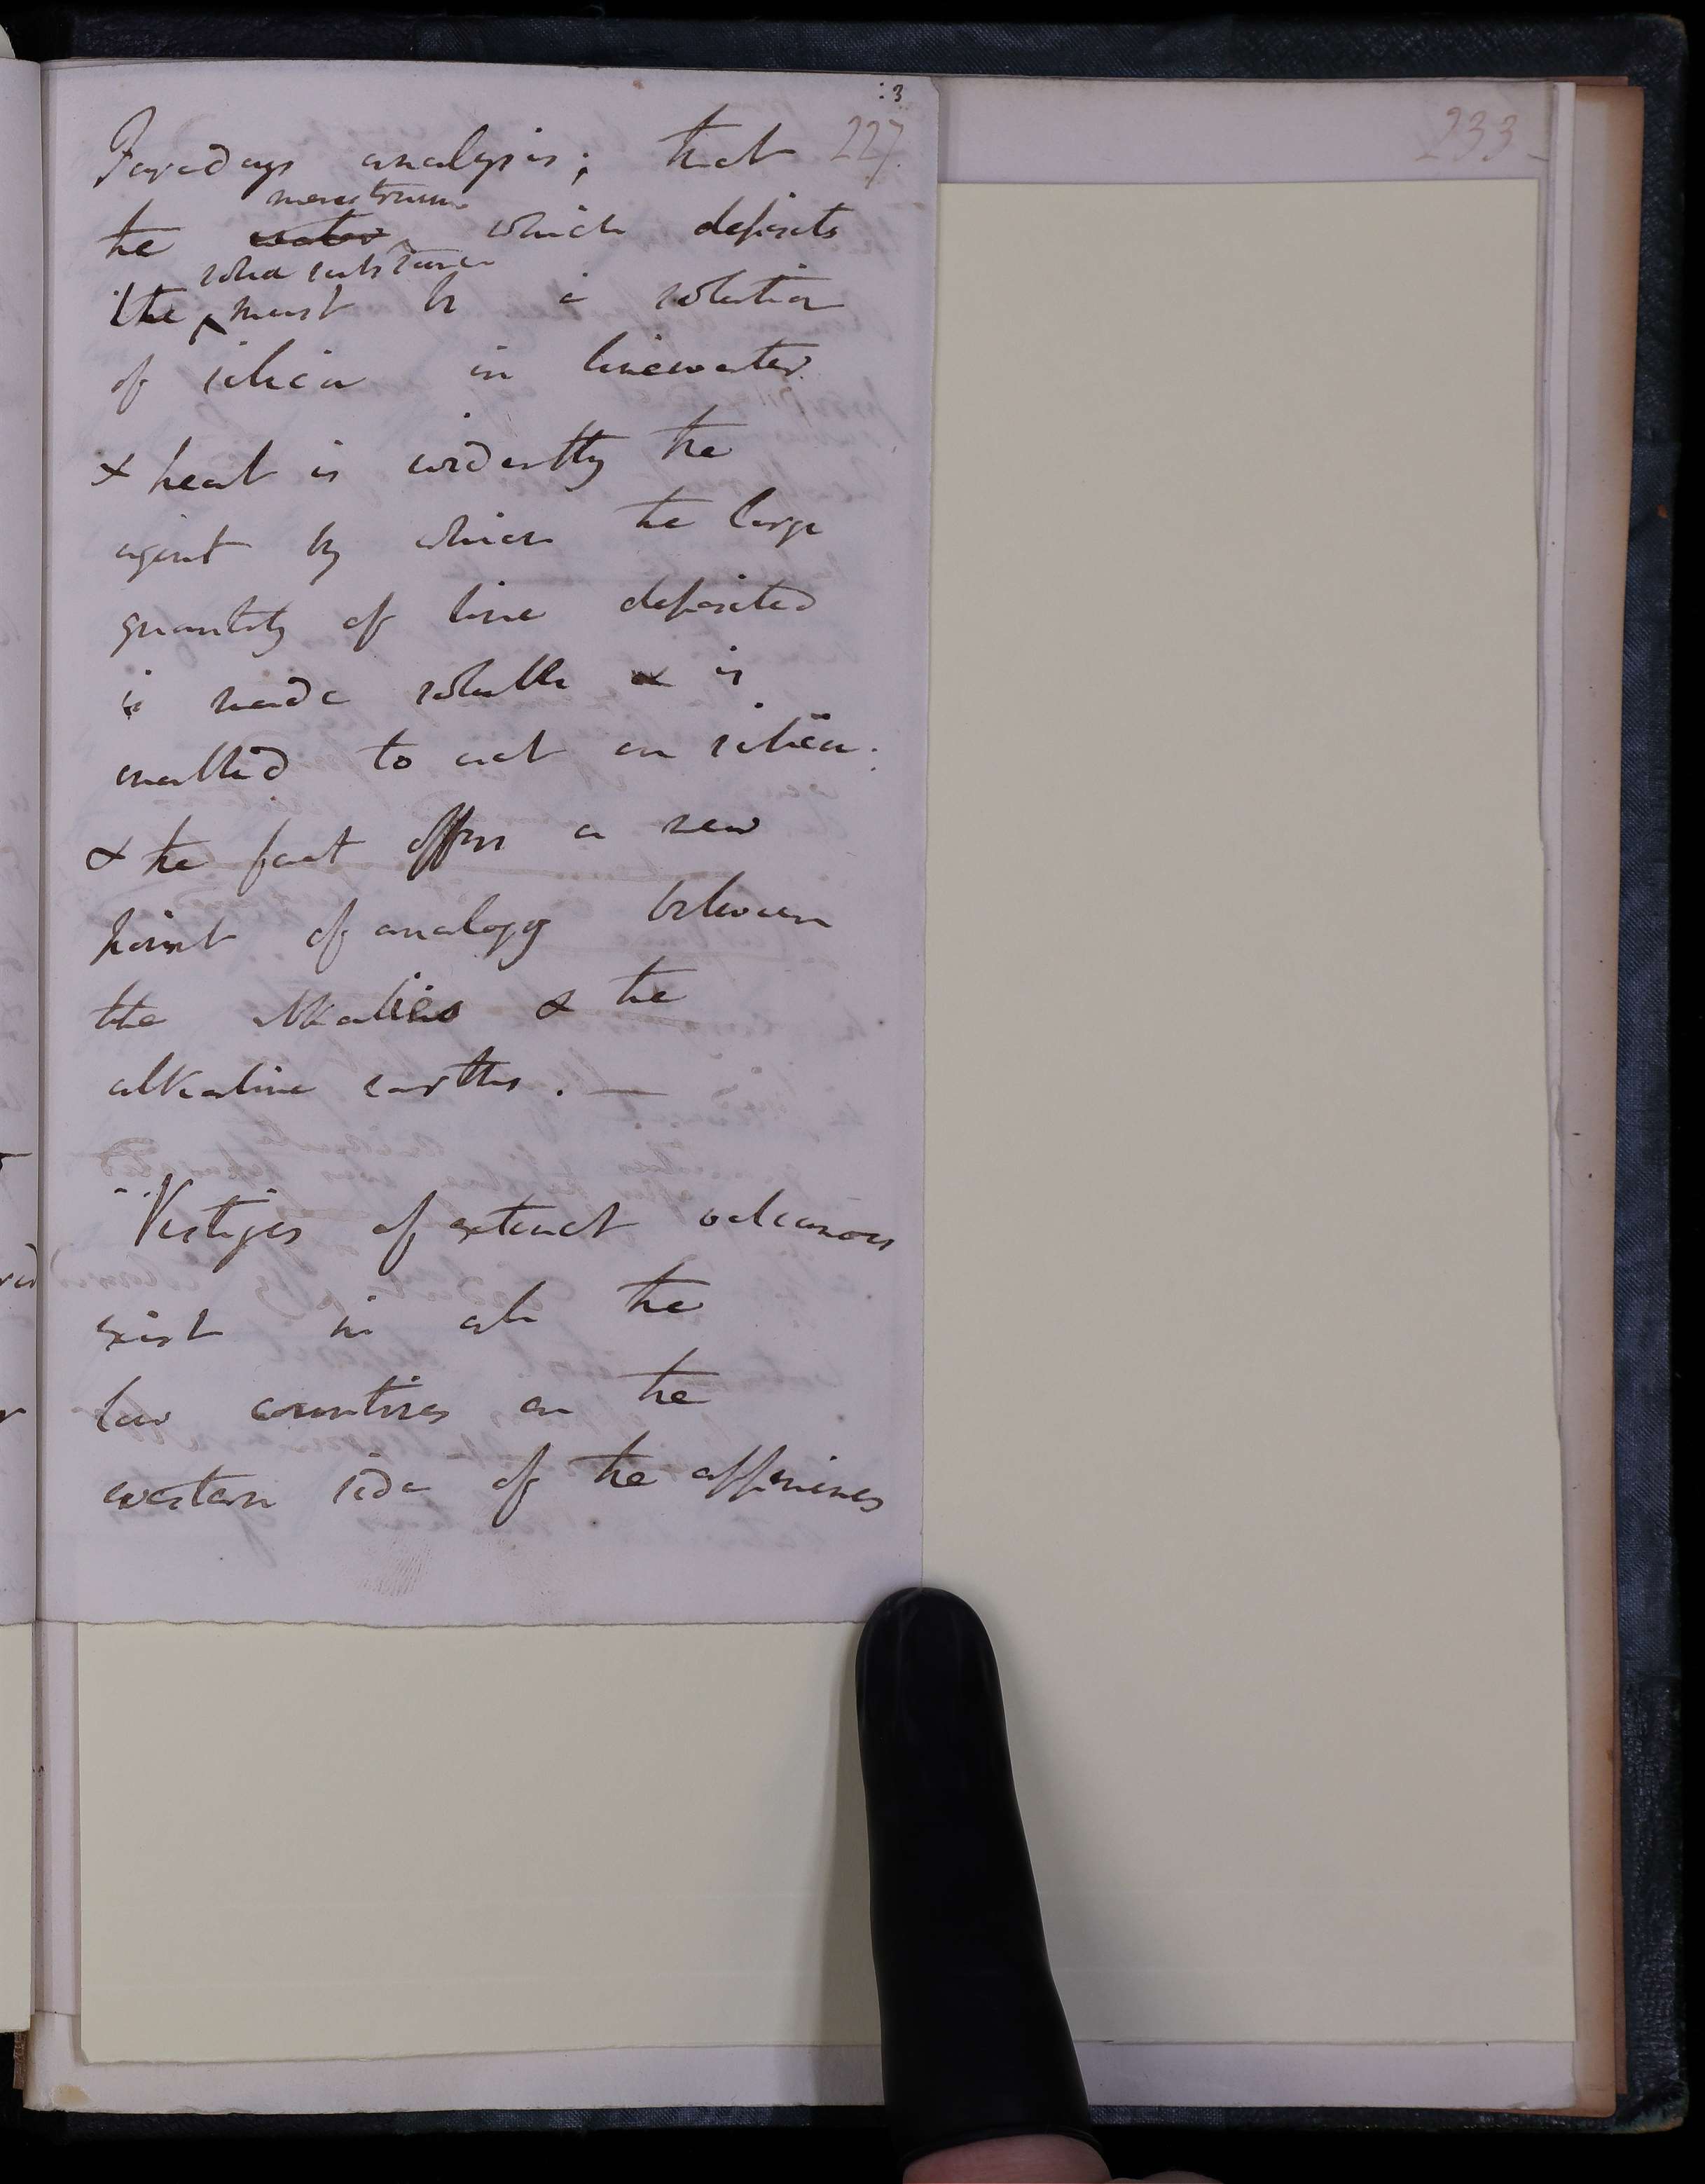 :3
227
233
Faradays analysis; that
menstruum
the water which deposits
solid substance
the must be a solution
of silica in limewater.
& heat is evidently the
agent by which the large
quantity of lime deposited
is made soluble & is
enabled to act on silica:
& the fact offers a new
point of analogy between
the alkalies & the
alkaline earths. —
Vestiges of extinct volcanoes
exist in all the
low countries on the
western side of the appenines